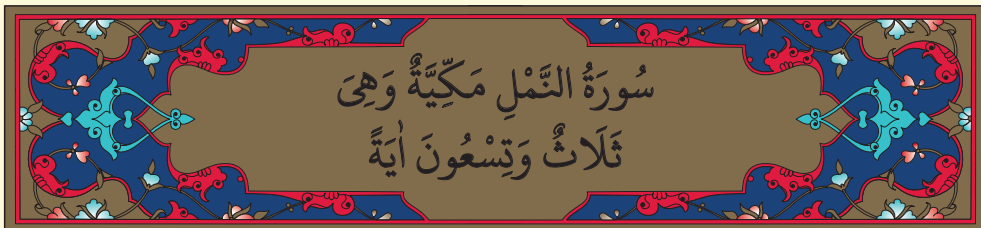 سُورَةُ النَّمْلِ مَكِّيَّةٌ وَهِىَ
ثَلَاثٌ وَتِسْعُونَ اٰيَةً